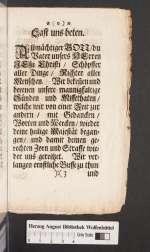 Last uns beten.
Allmächtiger GOTT / du
Vater unsers HErren
JEsu Christi / Schöpffer
aller Dinge / Richter aller
Menschen / Wir bekennen und
bereuen unsere mannigfaltige
Sünden und Missethaten /
welche wir von einer Zeit zur
andern / mit Gedancken /
Worten und Wercken / wieder
deine heilige Majestät began-
gen / und damit deinen ge-
rechten Zorn und Straffe wie-
der uns gereitzet. Wir ver-
langen ernstliche Busse zu thun
und
Herzog August Bibliothek Wolfenbüttel